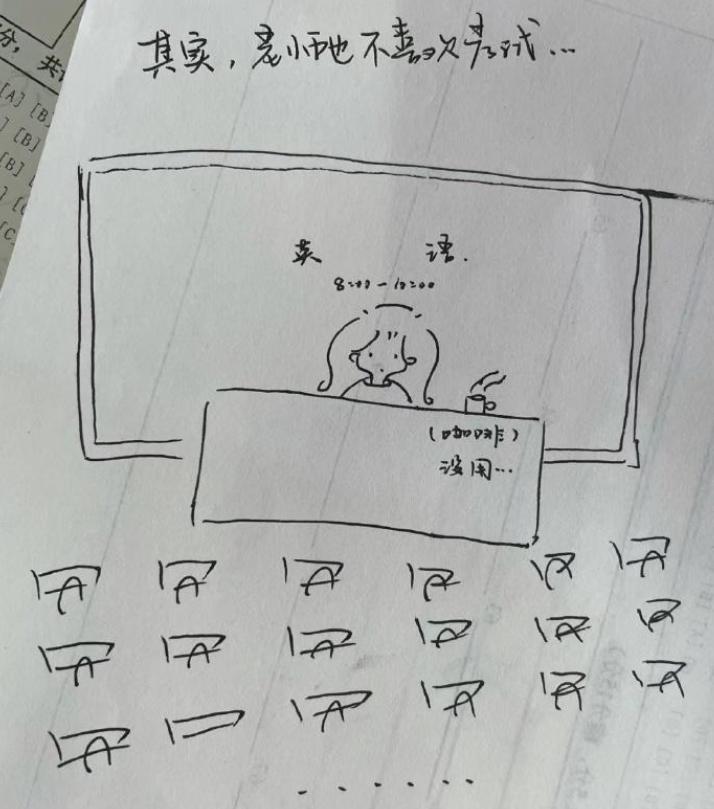 其实，老师也不喜欢考试...
分，共
[A] [B
] [B]
[B] [
] [C
[C
英 语.
8:00-10:00
(咖啡)
没用...